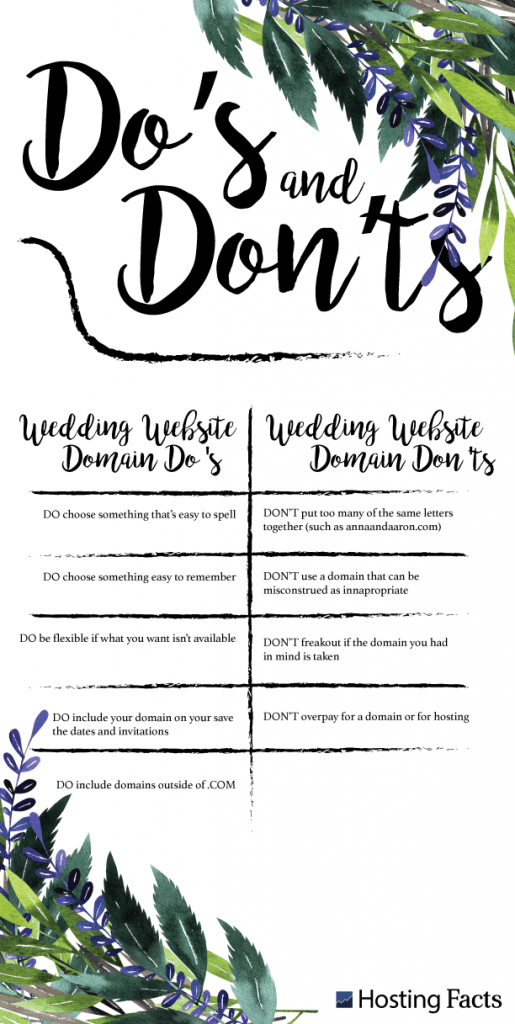 Do's and
Don'ts
Wedding Website
Domain Do's
DO choose something that's easy to spell
DO choose something easy to remember
DO be flexible if what you want isn't available
DO include your domain on your save
the dates and invitations
DO include domains outside of .COM
Wedding Website
Domain Don'ts
DON'T put too many of the same letters
together (such as annaandaaron.com)
DON'T use a domain that can be
misconstrued as innapropriate
DON'T freakout if the domain you had
in mind is taken
DON'T overpay for a domain or for hosting
Hosting Facts